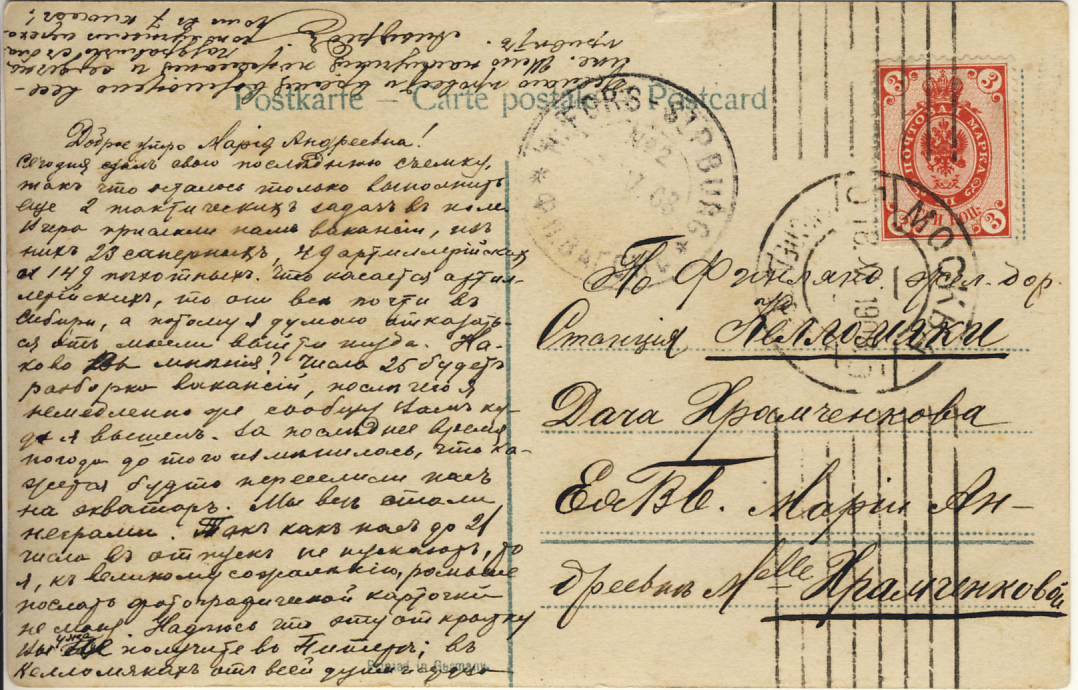 Postkarte – Carte postale – Postcard
Доброе утро Марія Андреевна!
Сегодня сдалъ свою послѣднюю съемку,
такъ что осталось только выполнить
еще 2 тактическихъ задачъ въ полѣ
Вчера прислали намъ вакансіи, изъ
нихъ 23 саперныхъ, 49 артиллерійскихъ
и 149 пѣхотныхъ. Что касается артил-
лерійскихъ, то они всѣ почти въ
Сибири, а потому я думаю отказать-
ся отъ мысли выйти туда. Ка-
ково мнѣнія? Числа 25 будетъ
разборка вакансій, послѣ чего я
немедленно же сообщу Вамъ ку-
да я вышелъ. За послѣднее время
погода до того измѣнилась, что ка-
жется будто переселили насъ
на экваторъ. Мы всѣ стали
неграми. Такъ какъ насъ до 21
числа въ отпускъ не пускаютъ, то
я, къ великому сожалѣнію, раньше
послать фотографической карточки
не могу. Надѣюсь что эту открытку
Вы уже получите въ Питерѣ; въ
Келломякахъ отъ всей души
желаю провести время весело
привѣтъ.
Printed in Germany
ПОЧТОВАЯ МАРКА
3 3 3 3
КОП.
W.FORS-ST.PBURG
№2
МОСКВА
Ст. Финлянд. жел. дор.
Станція Келломяки
Дача Храмченкова
ЕяВБ. Маріи Ан-
дреевнѣ Mlle Храмченковой